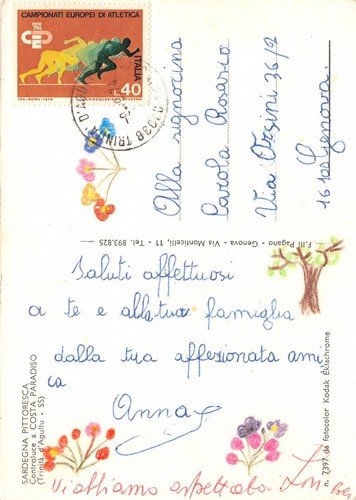 CAMPIONATI EUROPEI DI ATLETICA
ITALIA
L.40
I.P.S.-ROMA-1974
Alla signorina
Parola Rosario
Via Orsini 36/9
16100 Genova.
F.lli Pagano - Genova - Via Monticelli, 11 - Tel. 893.825
Saluti affettuosi
a te e alla tua famiglia
dalla tua affezionata ami
ca
Anna
SARDEGNA PITTORESCA
Controluce a COSTA PARADISO
(Trinità d'Agultu - SS)
n. 7397 da fotocolor Kodak Ektachrome
Vi abbiamo aspettato